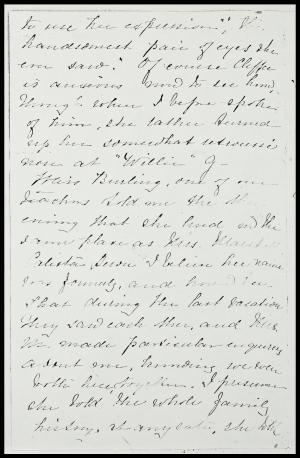 to use her expression", "the
handsomest pair of eyes she
ever saw." Of course Cliffie
is anxious now to see him,
though when I before spoke
of him, she rather turned
up her somewhat retroussé
nose at "Willie" G—
Miss Burling, one of our
teachers told me the other
evening that she lived in the
same place as Mrs. Marshall
I believe her name
was formerly, and
that during the last vacation
they saw each other, and Mrs.
M. made particular enquiries
about me, knowing we were
both here together. I presume
she told the whole family
history, at any rate, she told